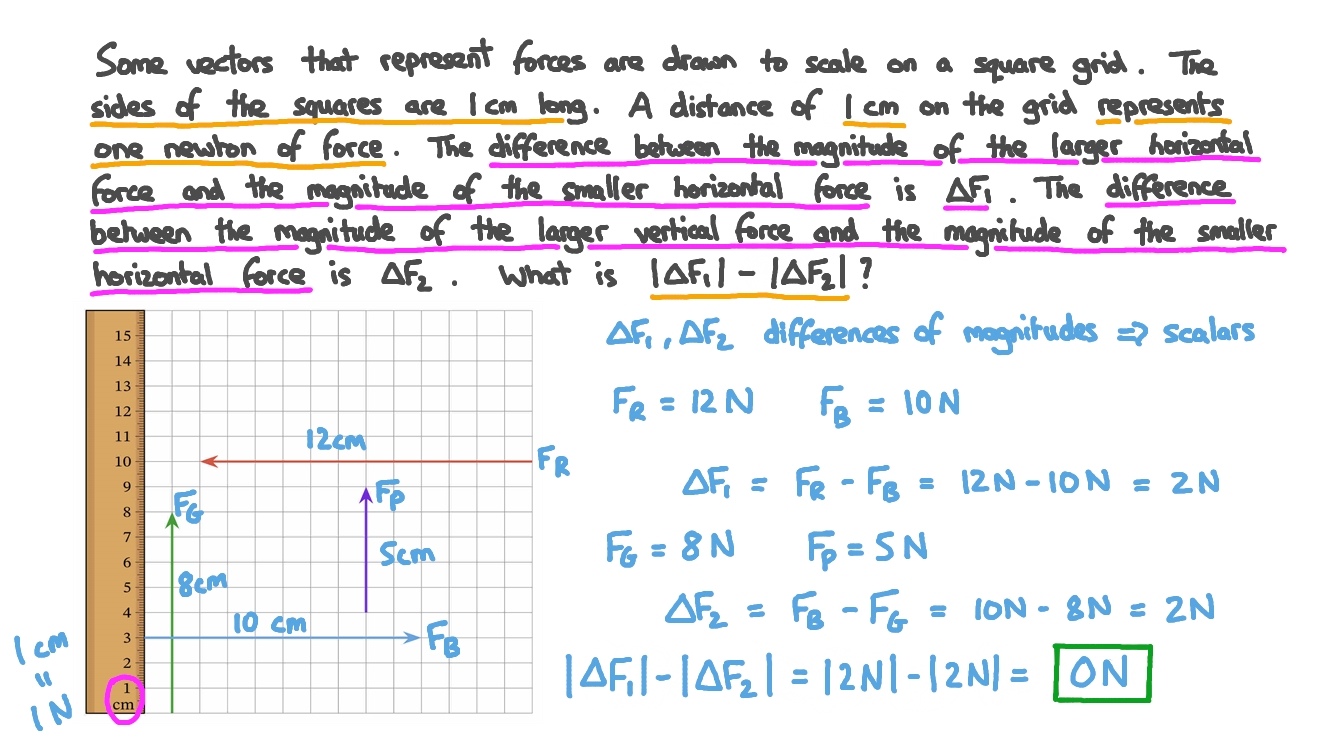 Some vectors that represent forces are drawn to scale on a square grid. The
sides of the squares are 1 cm long. A distance of 1 cm on the grid represents
one newton of force. The difference between the magnitude of the larger horizontal
force and the magnitude of the smaller horizontal force is ΔF₁. The difference
between the magnitude of the larger vertical force and the magnitude of the smaller
horizontal force is ΔF₂. What is |ΔF₁| - |ΔF₂|?
ΔF₁, ΔF₂ differences of magnitudes => scalars
F_R = 12N F_B = 10N
ΔF₁ = F_R - F_B = 12N - 10N = 2N
F_G = 8N F_P = 5N
ΔF₂ = F_B - F_G = 10N - 8N = 2N
|ΔF₁| - |ΔF₂| = |2N| - |2N| = 0N
15
14
13
12
11
10
9
8
7
6
5
4
3
2
1
cm
12cm
F_R
F_P
F_G
5cm
8cm
10 cm
F_B
1 cm
"
1N